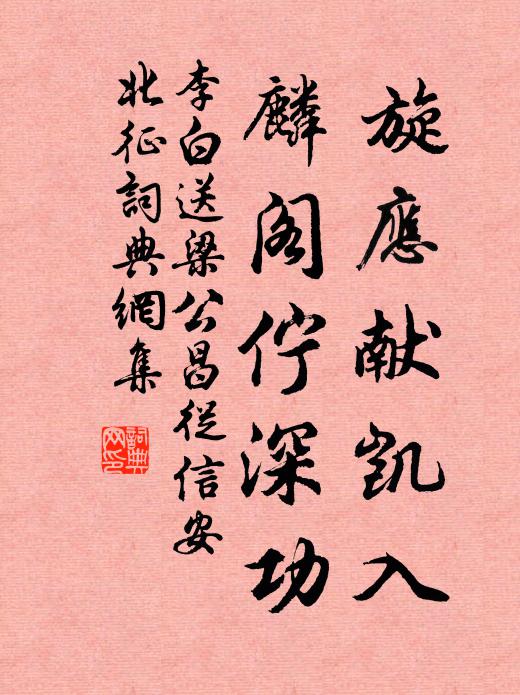 旋應献凱入
麟阁佇深功
李白送梁公昌從信安
北征詞典網集
詞典网印